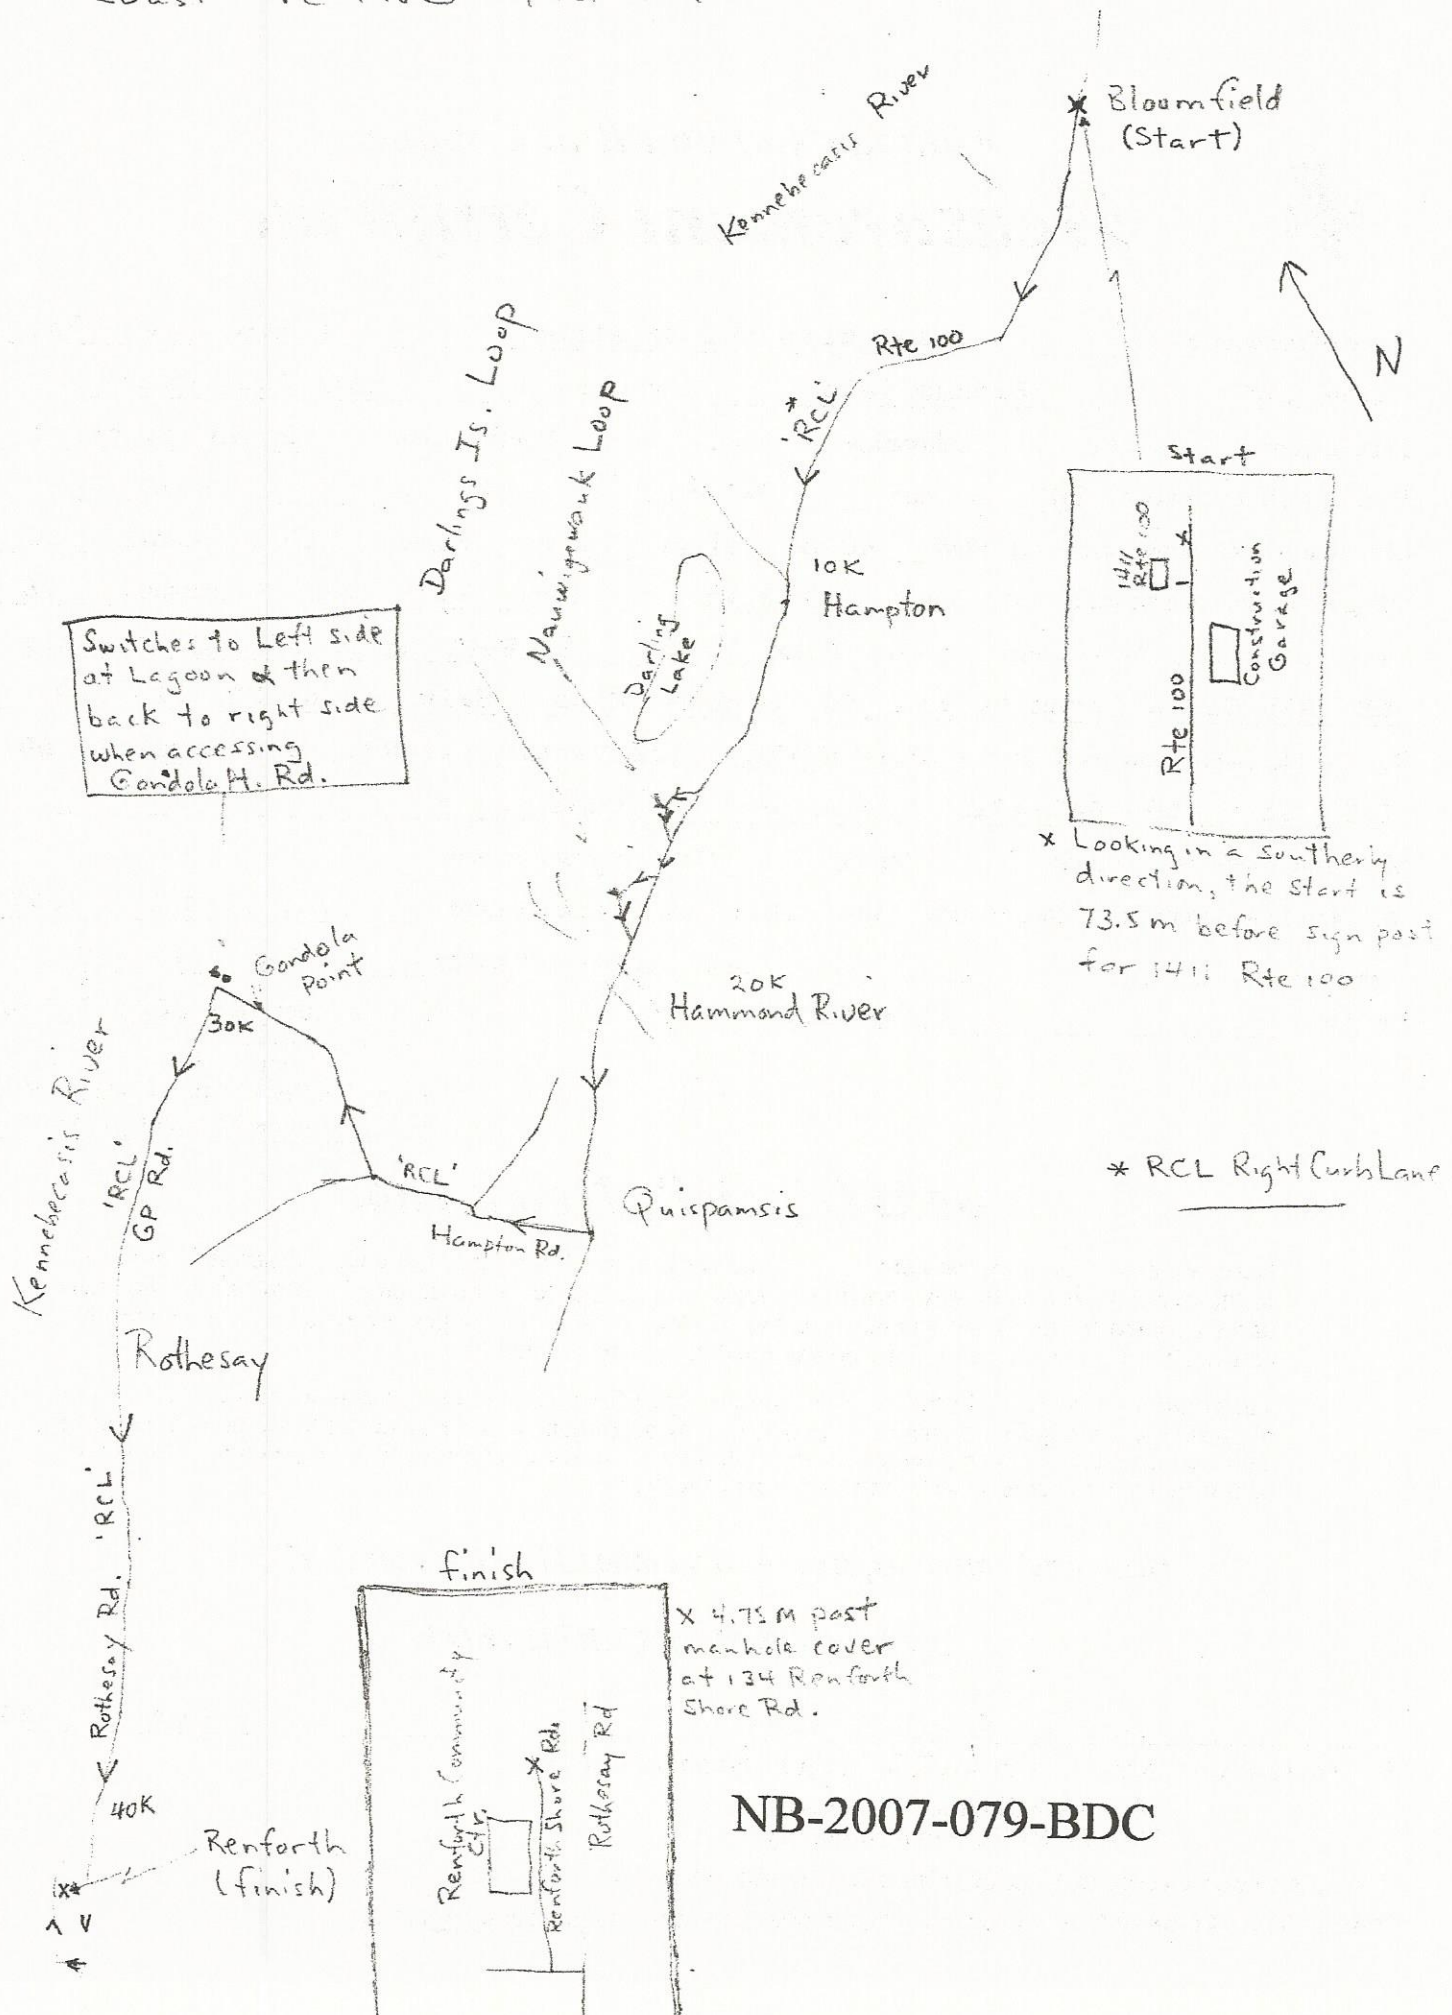 Kennebecasis River
Bloomfield
(Start)
Rte 100
'RCL' *
N
Darlings Is. Loop
Nauwigewauk Loop
Darling
Lake
10K
Hampton
Start
1411
Rte 100
Construction
Garage
Rte 100
x Looking in a southerly
direction, the start is
73.5 m before sign post
for 1411 Rte 100
Switches to Left side
at Lagoon & then
back to right side
when accessing
Gondola H. Rd.
Gondola
Point
30K
20K
Hammond River
Kennebecasis River
'RCL'
GP Rd.
'RCL'
Hampton Rd.
Quispamsis
* RCL Right Curb Lane
Rothesay
'RCL'
Rothesay Rd.
40K
Renforth
(finish)
finish
Renforth Community
Ctr.
Renforth Shore Rd.
Rothesay Rd
x 4.75 M past
manhole cover
at 134 Renforth
Shore Rd.
NB-2007-079-BDC